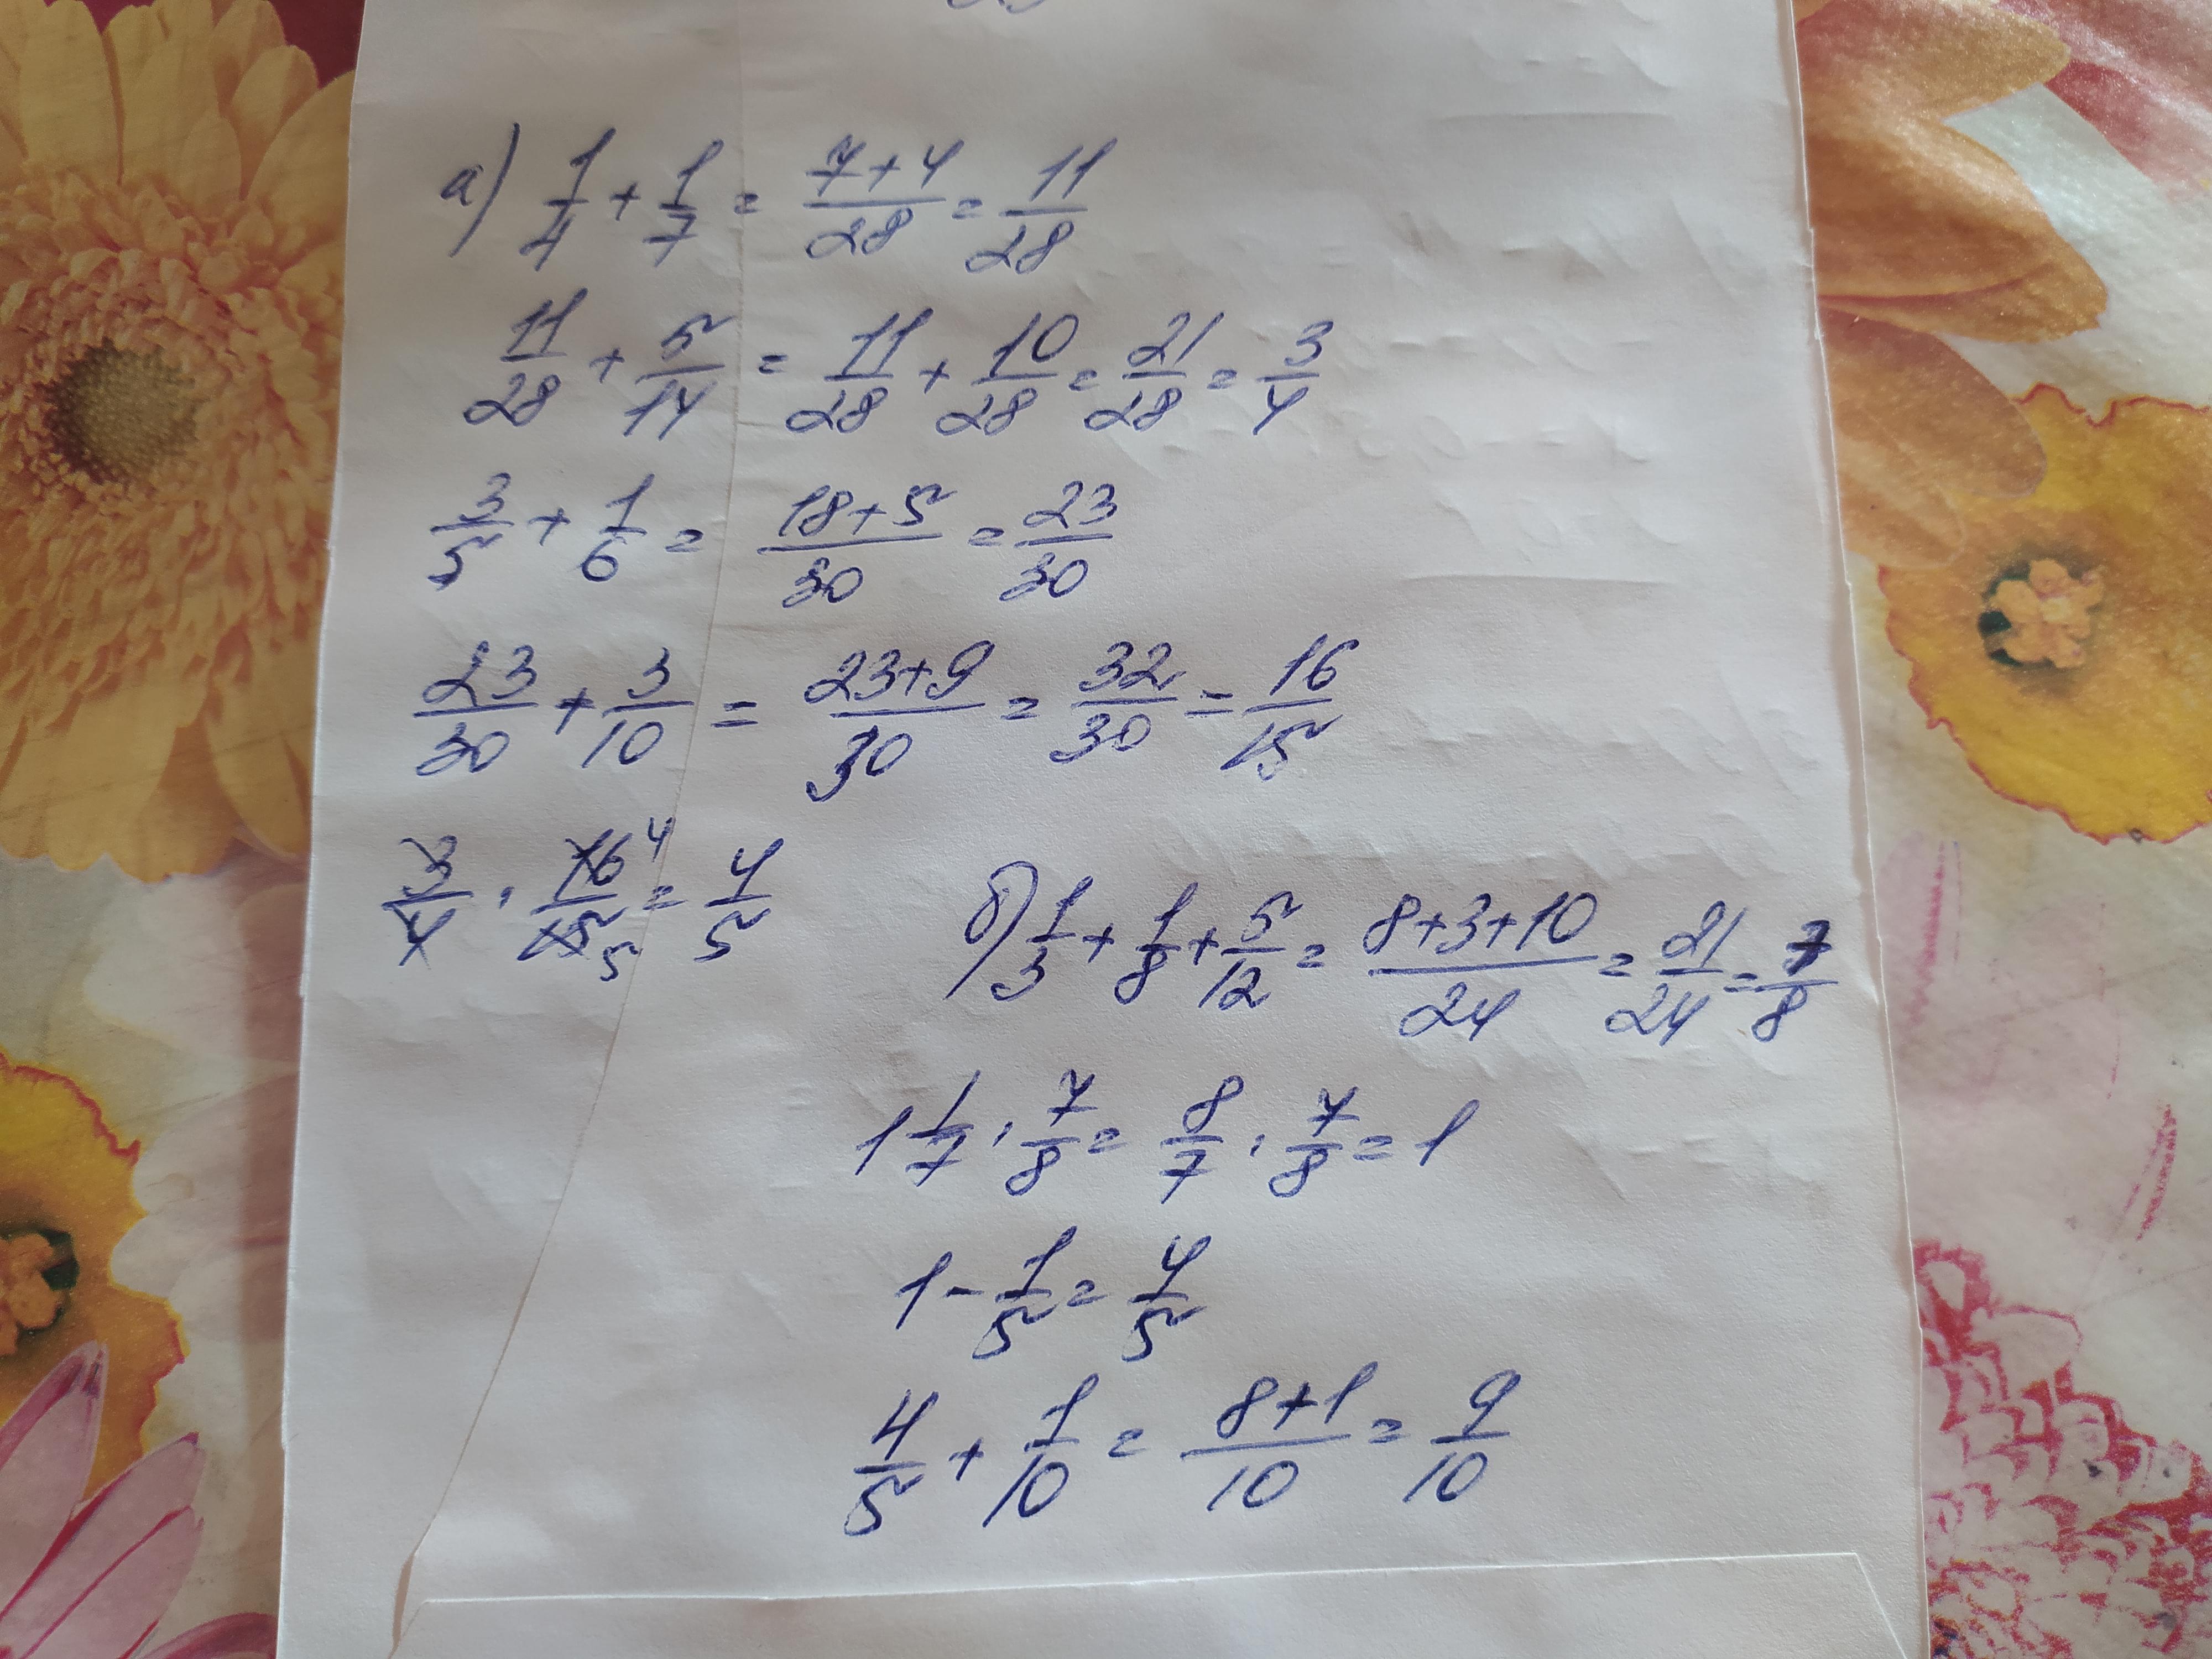 а) 1/4 + 1/7 = (7+4)/28 = 11/28
11/28 + 5/14 = 11/28 + 10/28 = 21/28 = 3/4
3/5 + 1/6 = (18+5)/30 = 23/30
23/30 + 3/10 = (23+9)/30 = 32/30 = 16/15
3/4 · 16/15 = 4/5
4
5
б) 1/3 + 1/8 + 5/12 = (8+3+10)/24 = 21/24 = 7/8
1 1/7 · 7/8 = 8/7 · 7/8 = 1
1 - 1/5 = 4/5
4/5 + 1/10 = (8+1)/10 = 9/10